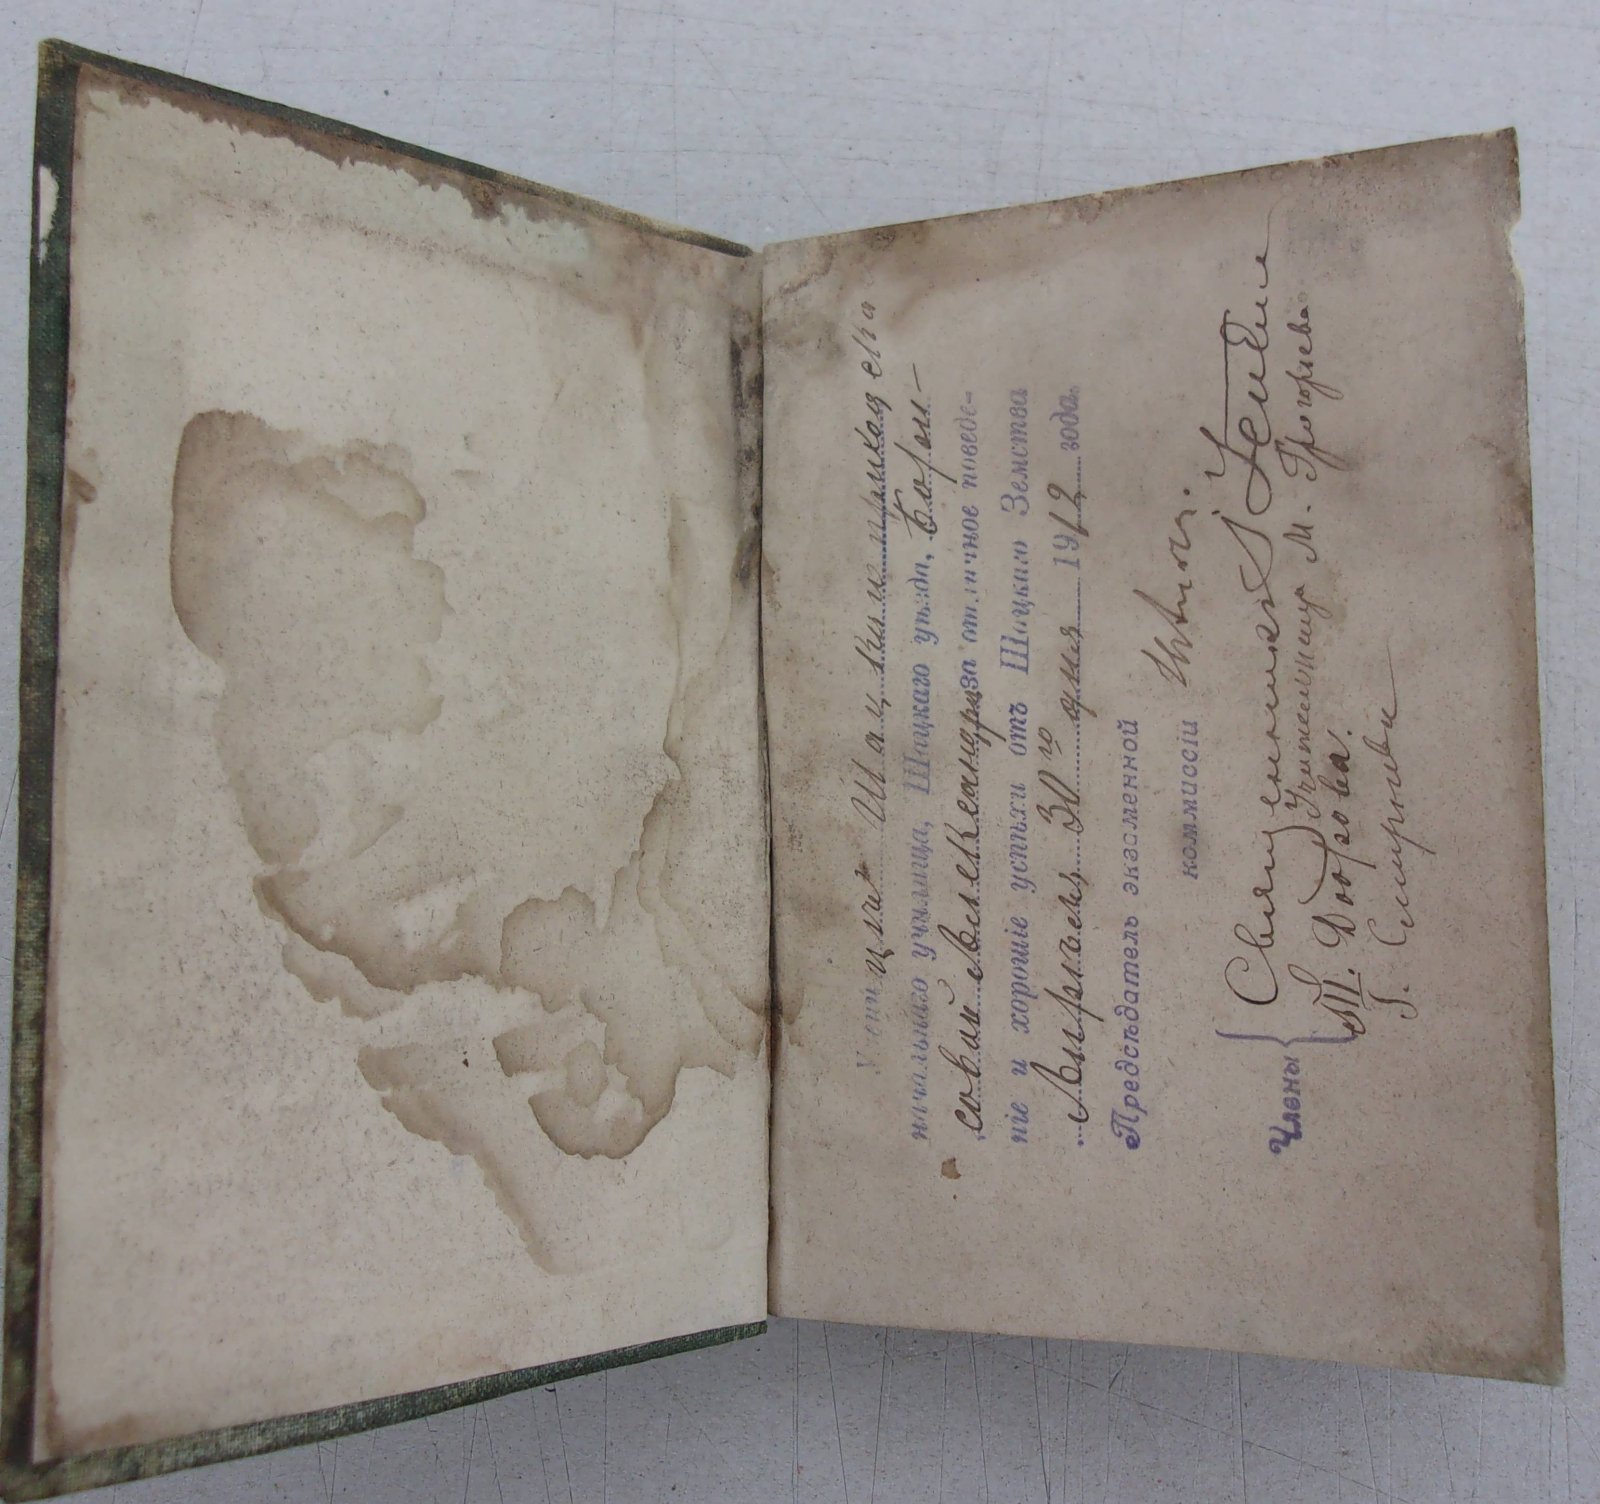 Учени цѣ Шацкаго
начальнаго училища, Шацкаго уѣзда, Бори-
совой Александрѣ за отличное поведе-
ніе и хорошіе успѣхи отъ Шацкаго Земства
Апрѣля 30го дня 1912 года.
Предсѣдатель экзаменной
коммиссіи
Члены Священникъ
Учительница М. Григорьева
Ш. 
Г. Смирнова